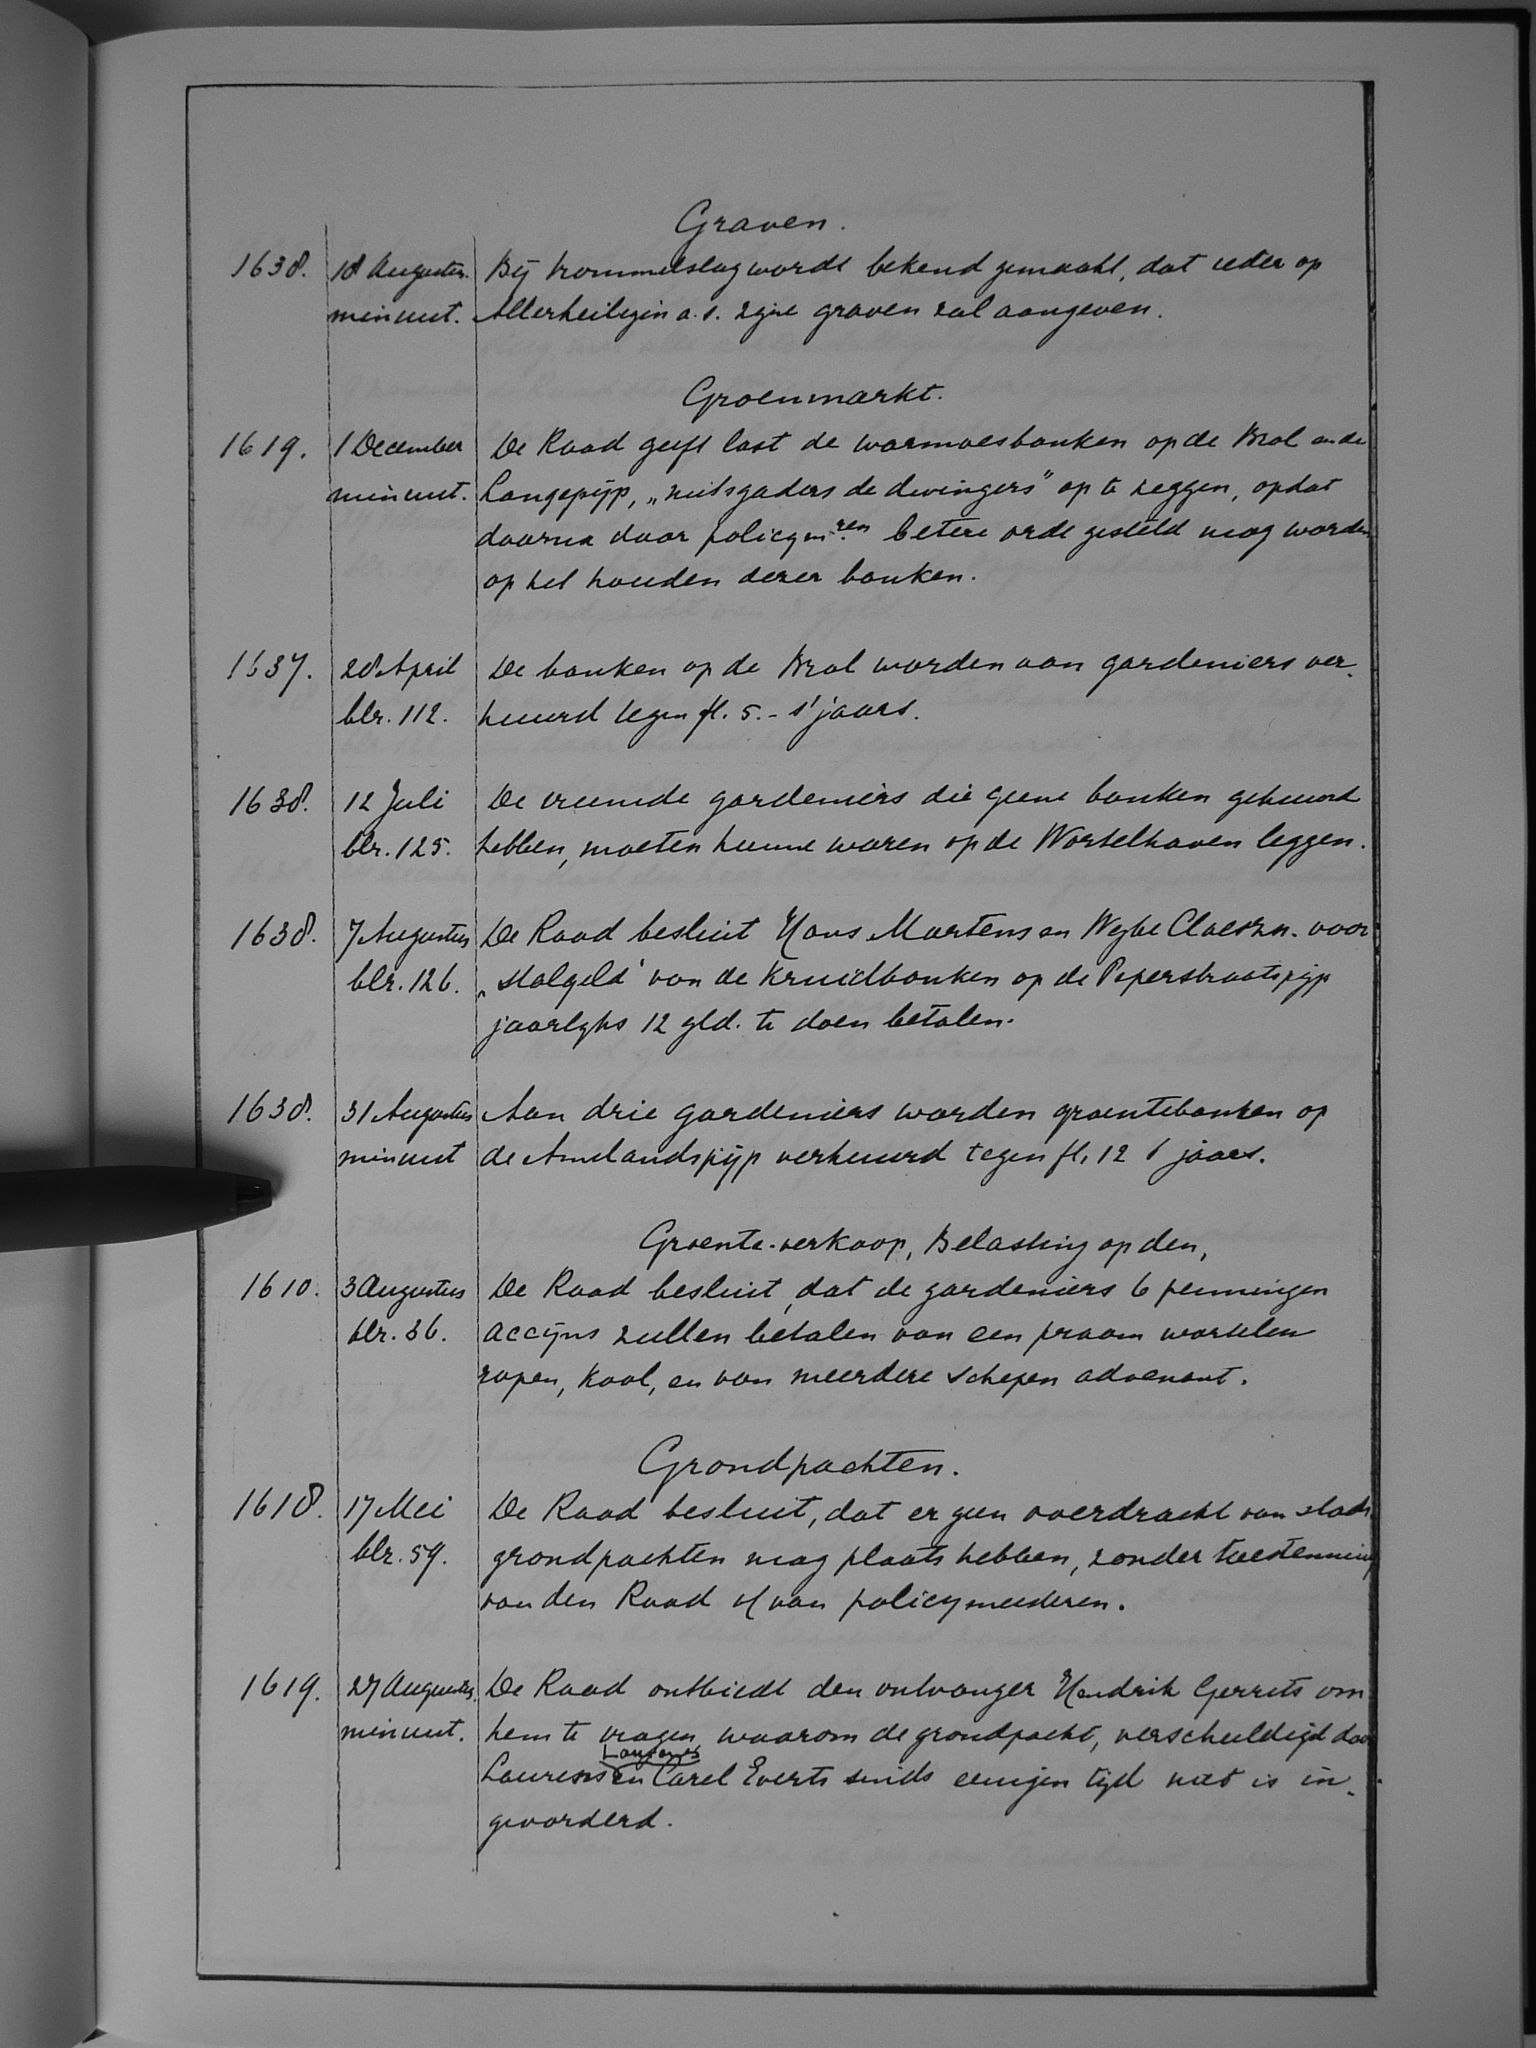 Graven.
1638. 18 Augustus. Bij trommelslag wordt bekend gemaakt, dat ieder op
minuut. Allerheiligen a.s. zijne graven zal aangeven.
Groenmarkt.
1619. 1 December De Raad geeft last de warmoesbanken op de Brol en de
minuut. Langepijp, „mitsgaders de dwingers" op te zeggen, opdat
daarna door policymren betere orde gesteld mag worden
op het houden dezer banken.
1637. 28 April De banken op de Brol worden aan gardeniers ver-
blz. 112. huurd tegen fl. 5.- s'jaars.
1638. 12 Juli De vreemde gardeniers die geene banken gehuurd
blz. 125. hebben, moeten hunne waren op de Wortelhaven leggen.
1638. 7 Augustus De Raad besluit Hans Martens en Wybe Claeszn. voor
blz. 126. „stalgeld' van de Kruidbanken op de Peperstraatspijp
jaarlyks 12 gld. te doen betalen.
1638. 31 Augustus Aan drie gardeniers worden groentebanken op
minuut de Amelandspijp verhuurd tegen fl. 12 's jaars.
Groente-verkoop, Belasting op den,
1610. 3 Augustus De Raad besluit, dat de gardeniers 6 penningen
blz. 36. accijns zullen betalen van een praam wortelen
rapen, kool, en van meerdere schepen advenant.
Grondpachten.
1618. 17 Mei De Raad besluit, dat er geen overdracht van stads
blz. 59. grondpachten mag plaats hebben, zonder toestemming
van den Raad of van policymeesteren.
1619. 27 Augustus. De Raad ontbiedt den ontvanger Hendrik Gerrits om
minuut. hem te vragen waarom de grondpacht, verschuldigd door
Laurens en Carel Everts sinds eenigen tijd niet is in-
gevorderd.